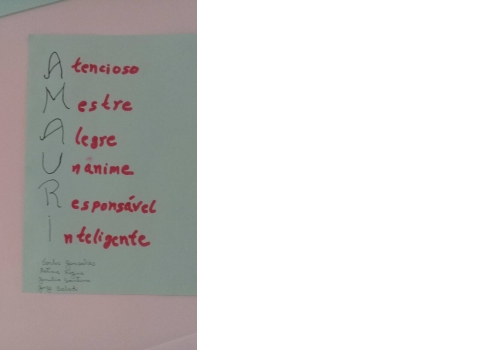 Atencioso
Mestre
Alegre
Unânime
Responsável
Inteligente